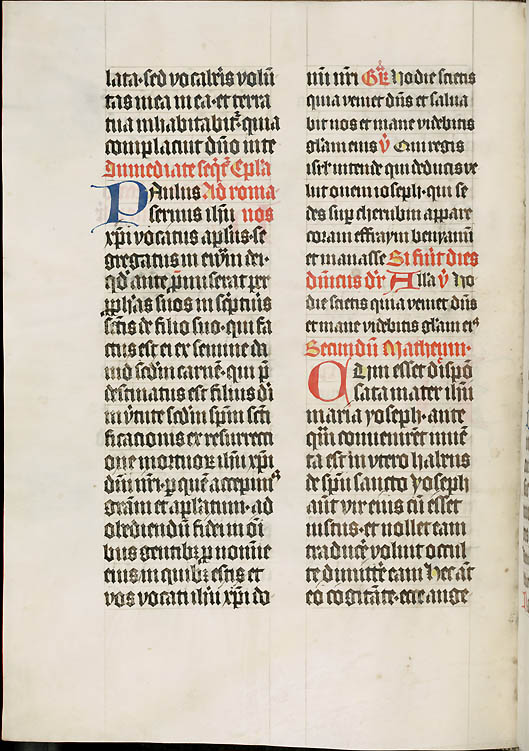 lata·sed vocaberis volun
tas mea in ea·et terra
tua inhabitabitur quia
complacuit dño in te
Inmediate seqr̃ Epl̃a
Paulus Ad roma
servus ihũ nos
xp̃i vocatus apl̃us·se
gregatus in ewm̃ dei·
qd̃ ante promiserat per
pph̃as suos in scriptuis
sc̃tis de filio suo·qui fa
ctus est ei ex semine da
uid sedm carnẽ·qui p̃
destinatus est filius di
in v̾tute sedm sp̃m sc̃ti
ficacionis ex resurrecti
one mortuoꝝ ihũ xp̃i
dñi nr̃i·p quẽ accepimꝰ
gr̃am et apl̃atum·ad
obediendũ fidei in om̃i
bus gentibꝫ p nomine
eius in quibꝫ estis et
vos vocati ihũ xp̃i do
mini nr̃i Gr̃ Hodie scietis
quia veniet dñs et salua
bit nos et mane videbitis
gl̃am eius v̾ Qui regis
isrl̃ intende qui deducis ve
lut ovem ioseph·qui se
des sup cherubin appare
coram effraym beniamin
et manasse Si fu̾it dies
dñicus dr̃ Alla v̾ Ho
die scietis quia veniet dñs
et mane videbitis gl̃am eiꝰ
Secundũ Matheum·
Cum esset dispõ
sata mater ihũ
maria yoseph·ante
qm̃ convenirẽt invẽ
ta est in vtero habens
de sp̃u sancto yoseph
aut̃ vir eius cũ esset
iustus·et nollet eam
traduc̾e voluit occul
te dimitt̾e eam Hec aut̃
eo cogitãte·ecce ange